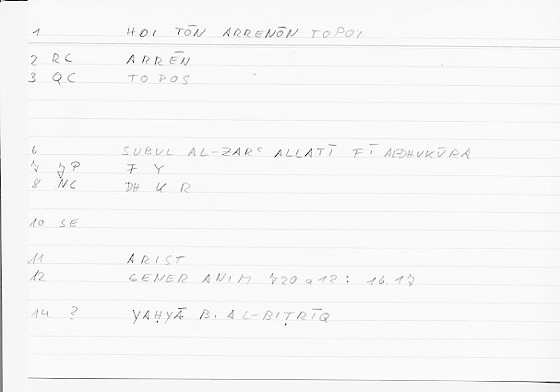 1 HOI TŌN ARRENŌN TOPOI
2 RC ARRĒN
3 QC TOPOS
6 SUBUL AL-ZARʿ ALLATĪ FĪ AL-DHUKŪRA
7 7P FY
8 NC DH K R
10 SE
11 ARIST
12 GENER ANIM 720 a 12 : 16.17
14 ? YAḤYĀ B. AL-BIṬRĪQ